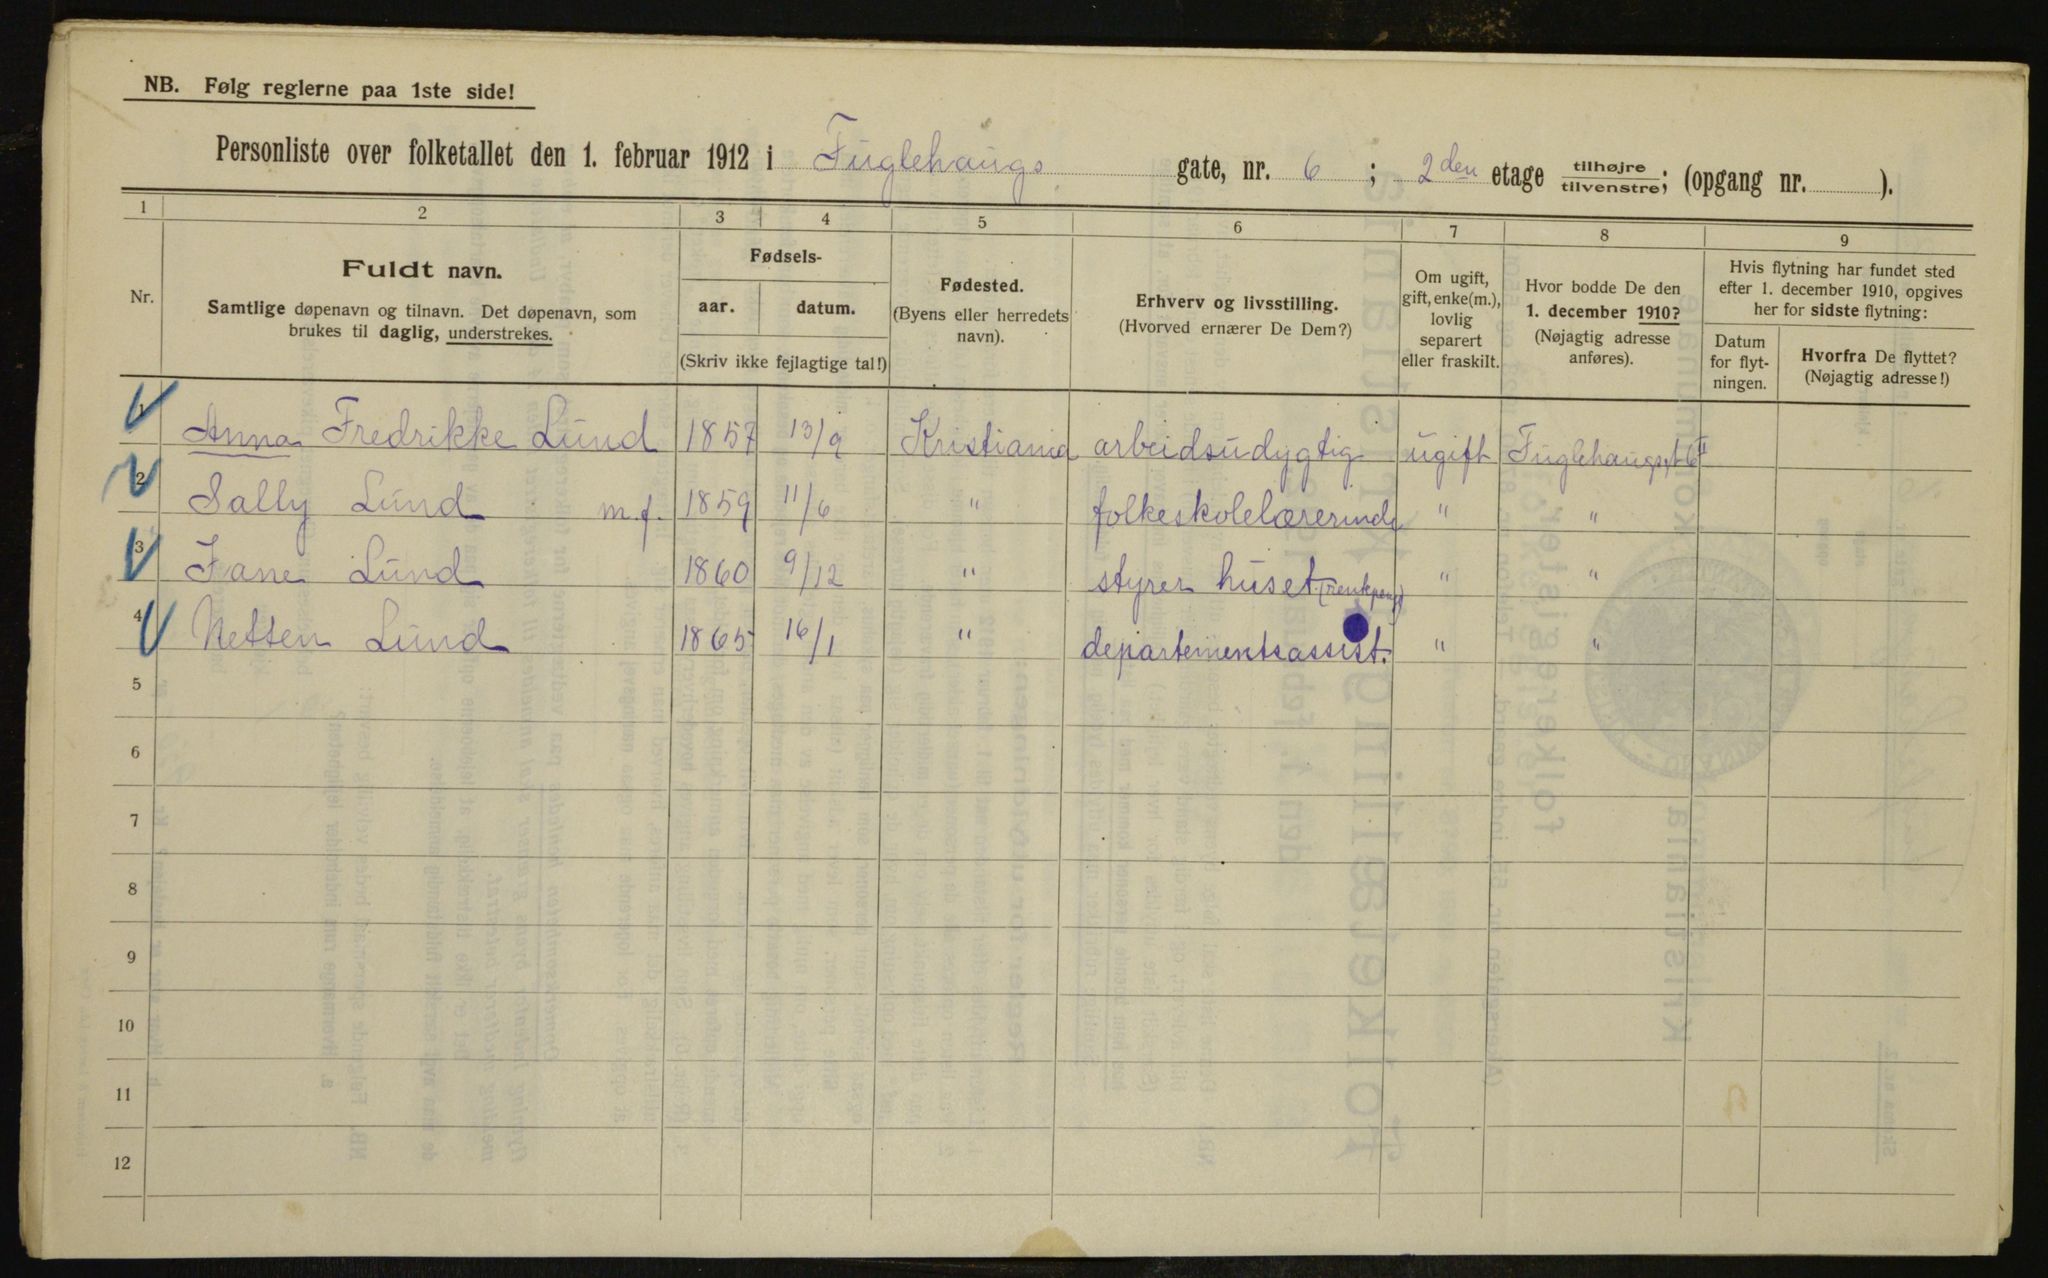 NB. Følg reglerne paa 1ste side!
Personliste over folketallet den 1. februar 1912 i Fuglehaugs gate, nr. 6 ; 2den etage tilhøjre tilvenstre; (opgang nr. ).
1 2 3 4 5 6 7 8 9
Nr.
Fuldt navn.
Samtlige døpenavn og tilnavn. Det døpenavn, som
brukes til daglig, understrekes.
Fødsels-
aar. datum.
(Skriv ikke fejlagtige tal!)
Fødested.
(Byens eller herredets
navn).
Erhverv og livsstilling.
(Hvorved ernærer De Dem?)
Om ugift,
gift, enke(m.),
lovlig
separert
eller fraskilt.
Hvor bodde De den
1. december 1910?
(Nøjagtig adresse
anføres).
Hvis flytning har fundet sted
efter 1. december 1910, opgives
her for sidste flytning:
Datum
for flyt-
ningen.
Hvorfra De flyttet?
(Nøjagtig adresse!)
1 Anna Fredrikke Lund 1857 13/9 Kristiania arbeidsudygtig ugift Fuglehaugsgt 6 II
2 Sally Lund m.f. 1859 11/6 " folkeskolelærerinde " "
3 Jane Lund 1860 9/12 " styrer huset " "
4 Netten Lund 1865 16/1 " departementsassist. " "
5
6
7
8
9
10
11
12